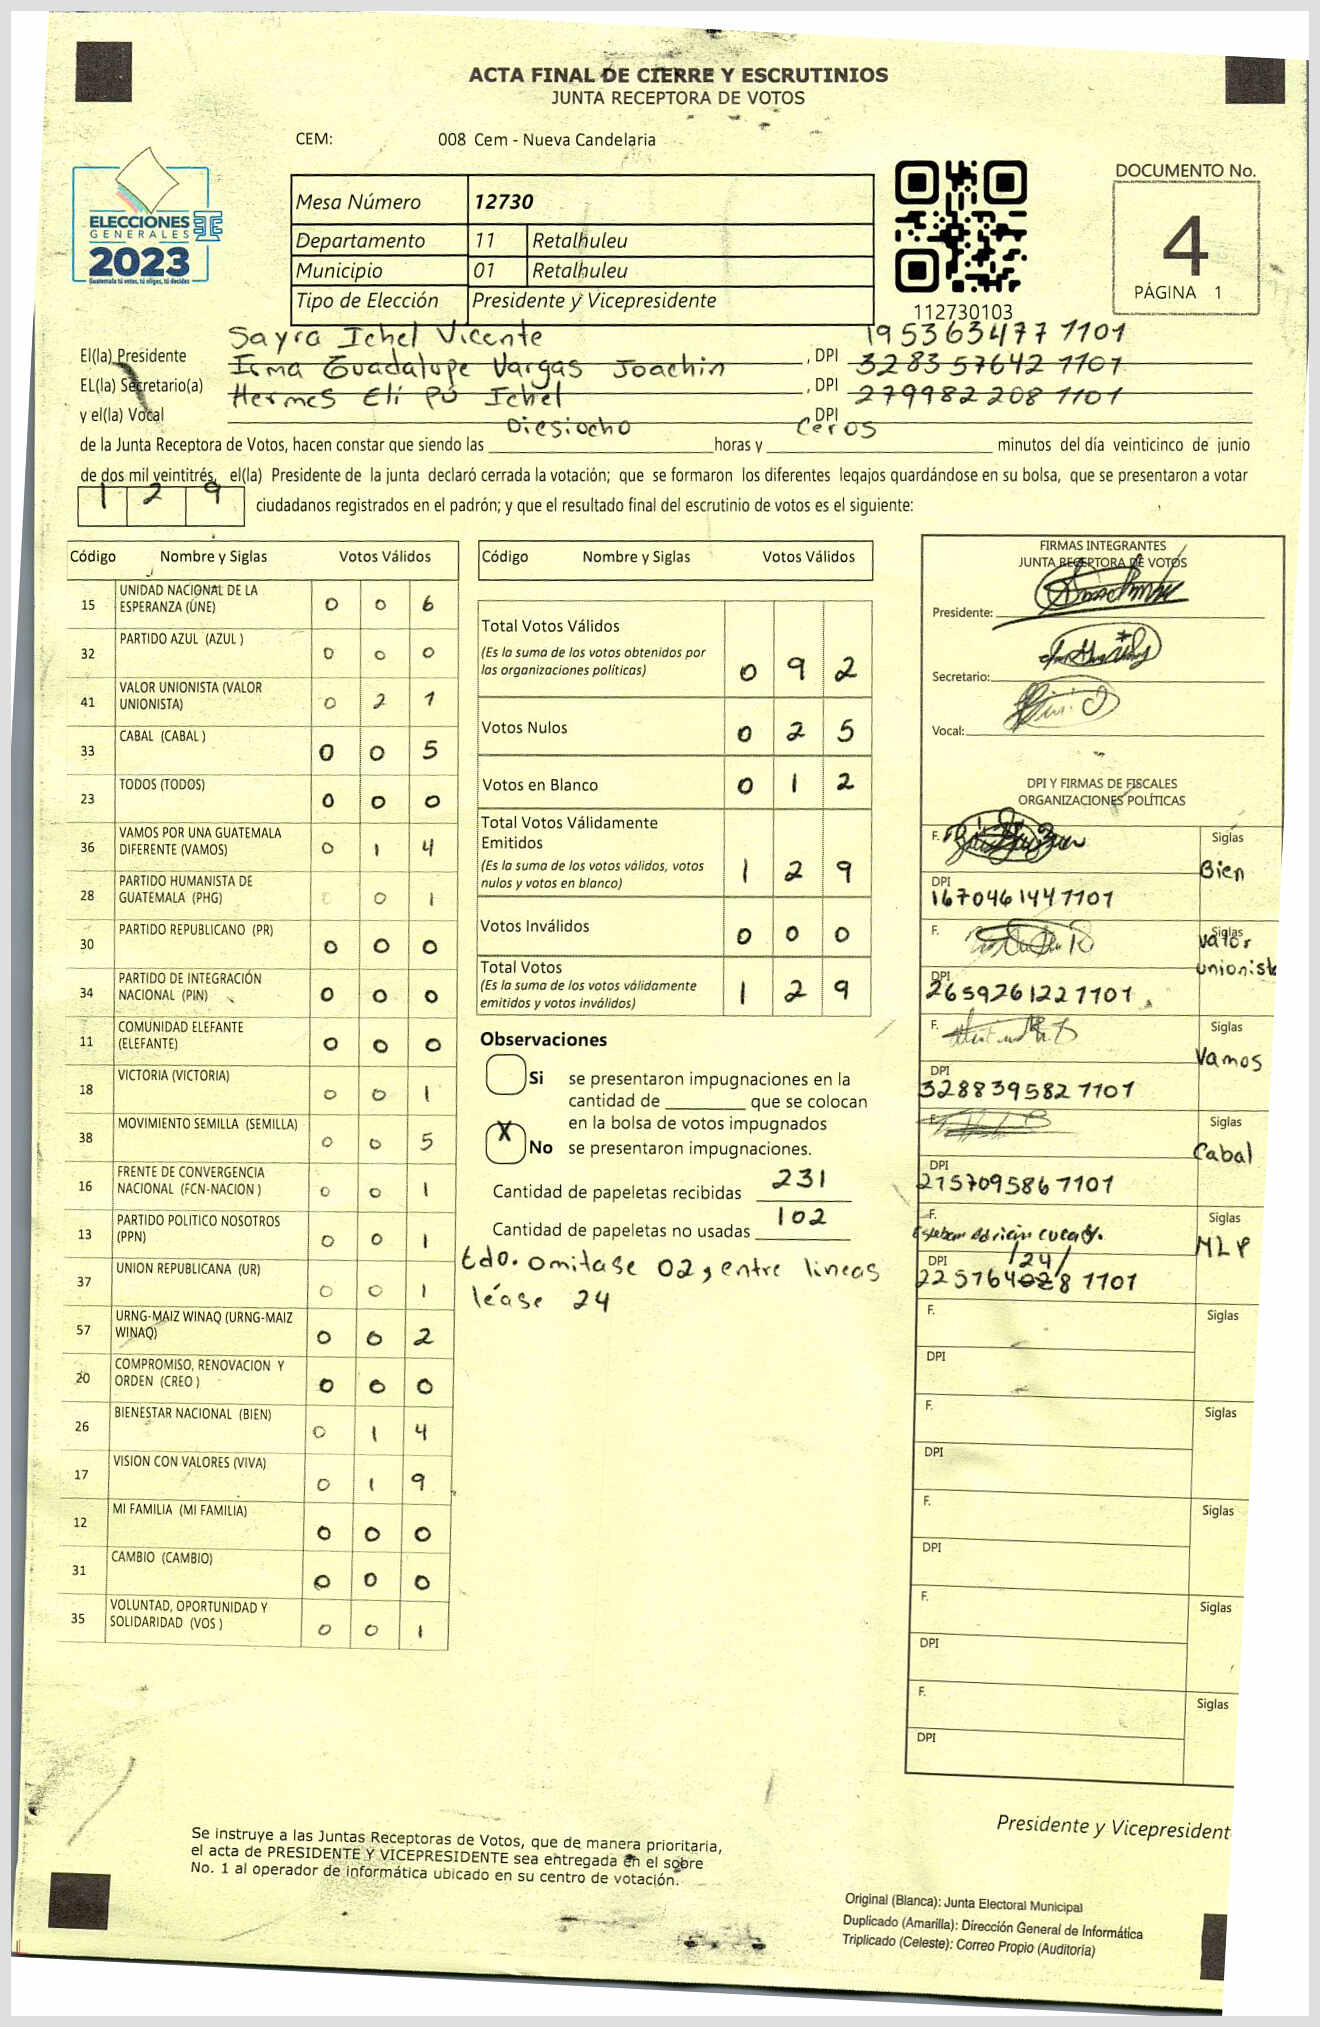 ACTA FINAL DE CIERRE Y ESCRUTINIOS
JUNTA RECEPTORA DE VOTOS
CEM: 008 Cem - Nueva Candelaria
ELECCIONES
GENERALES
2023
Guatemala tú votas, tú eliges, tú decides
Mesa Número 12730
Departamento 11 Retalhuleu
Municipio 01 Retalhuleu
Tipo de Elección Presidente y Vicepresidente
112730103
DOCUMENTO No.
4
PÁGINA 1
El(la) Presidente Sayra Ichel Vicente , DPI 195363477 1101
EL(la) Secretario(a) Irma Guadalupe Vargas Joachin , DPI 328357642 1101
y el(la) Vocal Hermes Elí Pú Ichel DPI 279982208 1101
de la Junta Receptora de Votos, hacen constar que siendo las Diesiocho horas y Ceros minutos del día veinticinco de junio
de dos mil veintitrés, el(la) Presidente de la junta declaró cerrada la votación; que se formaron los diferentes legajos guardándose en su bolsa, que se presentaron a votar
1 2 9 ciudadanos registrados en el padrón; y que el resultado final del escrutinio de votos es el siguiente:
Código Nombre y Siglas Votos Válidos
15 UNIDAD NACIONAL DE LA ESPERANZA (UNE) 0 0 6
32 PARTIDO AZUL (AZUL ) 0 0 0
41 VALOR UNIONISTA (VALOR UNIONISTA) 0 2 1
33 CABAL (CABAL ) 0 0 5
23 TODOS (TODOS) 0 0 0
36 VAMOS POR UNA GUATEMALA DIFERENTE (VAMOS) 0 1 4
28 PARTIDO HUMANISTA DE GUATEMALA (PHG) 0 0 1
30 PARTIDO REPUBLICANO (PR) 0 0 0
34 PARTIDO DE INTEGRACIÓN NACIONAL (PIN) 0 0 0
11 COMUNIDAD ELEFANTE (ELEFANTE) 0 0 0
18 VICTORIA (VICTORIA) 0 0 1
38 MOVIMIENTO SEMILLA (SEMILLA) 0 0 5
16 FRENTE DE CONVERGENCIA NACIONAL (FCN-NACION ) 0 0 1
13 PARTIDO POLITICO NOSOTROS (PPN) 0 0 1
37 UNION REPUBLICANA (UR) 0 0 1
57 URNG-MAIZ WINAQ (URNG-MAIZ WINAQ) 0 0 2
20 COMPROMISO, RENOVACION Y ORDEN (CREO ) 0 0 0
26 BIENESTAR NACIONAL (BIEN) 0 1 4
17 VISION CON VALORES (VIVA) 0 1 9
12 MI FAMILIA (MI FAMILIA) 0 0 0
31 CAMBIO (CAMBIO) 0 0 0
35 VOLUNTAD, OPORTUNIDAD Y SOLIDARIDAD (VOS ) 0 0 1
Código Nombre y Siglas Votos Válidos
Total Votos Válidos
(Es la suma de los votos obtenidos por
las organizaciones políticas) 0 9 2
Votos Nulos 0 2 5
Votos en Blanco 0 1 2
Total Votos Válidamente
Emitidos
(Es la suma de los votos válidos, votos
nulos y votos en blanco) 1 2 9
Votos Inválidos 0 0 0
Total Votos
(Es la suma de los votos válidamente
emitidos y votos inválidos) 1 2 9
Observaciones
Si se presentaron impugnaciones en la
cantidad de ________ que se colocan
en la bolsa de votos impugnados
X No se presentaron impugnaciones.
Cantidad de papeletas recibidas 231
Cantidad de papeletas no usadas 102
tdo. omitase 02, entre lineas
léase 24
FIRMAS INTEGRANTES
JUNTA RECEPTORA DE VOTOS
Presidente:
Secretario:
Vocal:
DPI Y FIRMAS DE FISCALES
ORGANIZACIONES POLÍTICAS
F. Siglas
Bien
DPI
167046144 1101
F. Siglas
Valor
unionist
DPI
265926122 1101
F. Siglas
Vamos
DPI
328839582 1101
F. Siglas
Cabal
DPI
215709586 1101
F. Siglas
Esteban Adrián
MLP
DPI /24/
225764028 1101
F. Siglas
DPI
F. Siglas
DPI
F. Siglas
DPI
F. Siglas
DPI
F. Siglas
DPI
Presidente y Vicepresident
Se instruye a las Juntas Receptoras de Votos, que de manera prioritaria,
el acta de PRESIDENTE Y VICEPRESIDENTE sea entregada en el sobre
No. 1 al operador de informática ubicado en su centro de votación.
Original (Blanca): Junta Electoral Municipal
Duplicado (Amarilla): Dirección General de Informática
Triplicado (Celeste): Correo Propio (Auditoría)